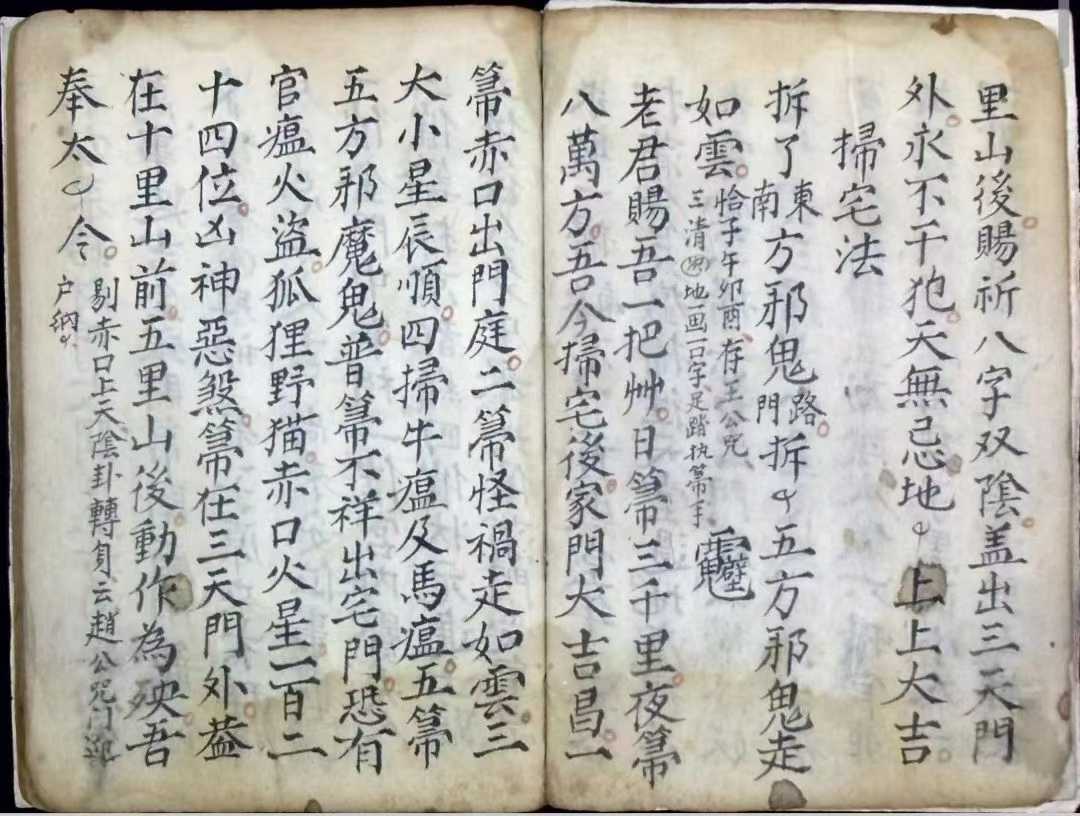 里山後賜祈八字双陰盖出三天門
外永不干犯天無忌地上上大吉
掃宅法
拆了東南方邪鬼路門拆五方邪鬼走
如雲恰子午卯酉存王公咒
三清地画一口字足踏执箒手
老君賜吾一把艸日箒三千里夜箒
八萬方吾今掃宅後家門大吉昌一
箒赤口出門庭二箒怪禍走如雲三
大小星辰順四掃牛瘟及馬瘟五箒
五方邪魔鬼普箒不祥出宅門恐有
官瘟火盜狐狸野猫赤口火星一百二
十四位凶神惡煞箒在三天門外葢
在十里山前五里山後動作為殃吾
奉太令
剔赤口上天陰卦轉負云趙公咒门迎
户纳